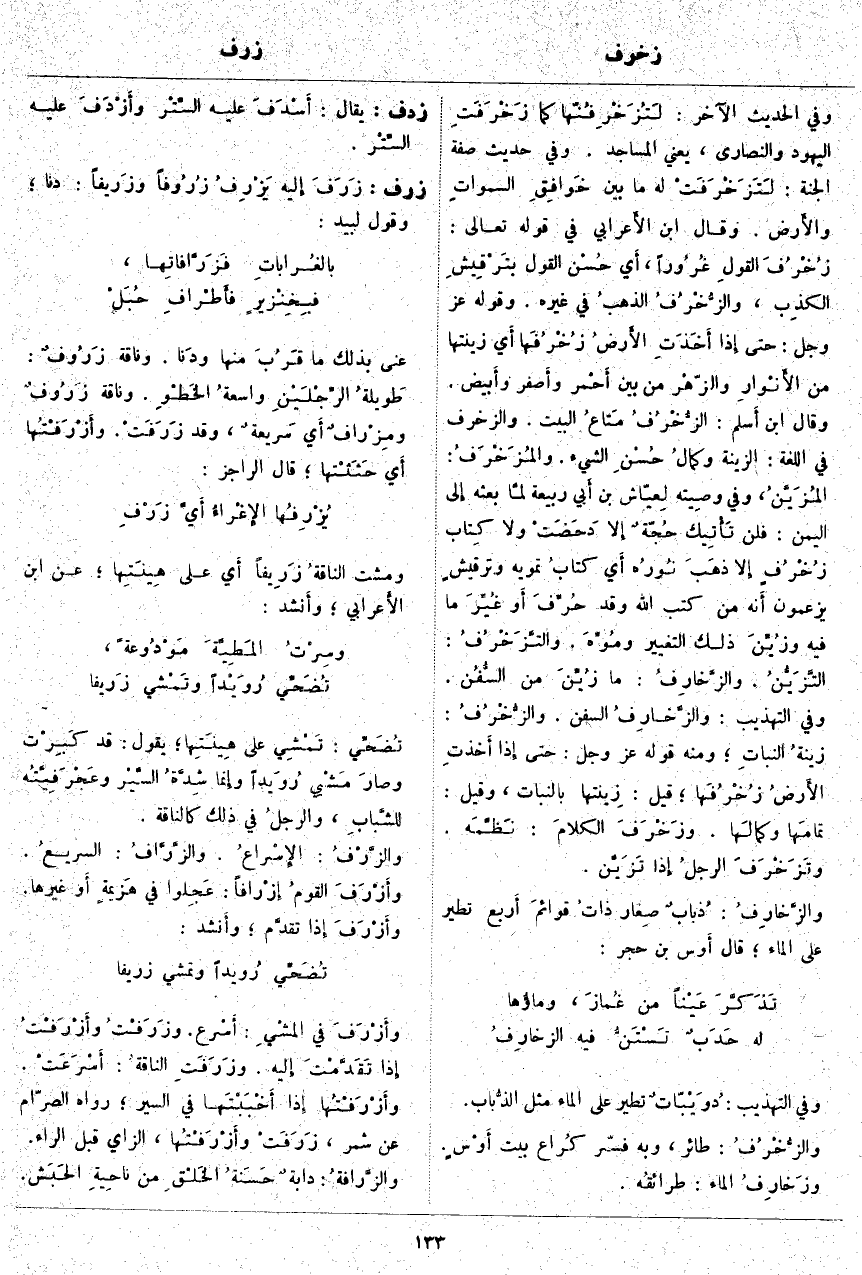 زخرف
زرف
وفي الحديث الآخر : لَتُزَخْرِفُنّها كما زَخْرَفَتِ
اليهود والنصارى ، يعني المساجد . وفي حديث صفة
الجنة : لَتَزَخْرَفَتْ له ما بين خَوافِقِ السموات
والأرض . وقال ابن الأعرابي في قوله تعالى :
زُخْرُفَ القولِ غُروراً ، أي حُسْن القول بتَرْقيشِ
الكذِب ، والزُّخْرُفُ الذهبُ في غيره . وقوله عز
وجل : حتى إذا أَخَذَتِ الأَرضُ زُخْرُفَها أي زينتها
من الأَنْوار والزَّهْر من بين أَحْمر وأَصفر وأَبيض .
وقال ابن أَسلم : الزُّخْرُفُ مَتاعُ البيت . والزخرف
في اللغة : الزينة وكمالُ حُسْنِ الشيء . والمُزَخْرَفُ :
المُزَيَّنُ ، وفي وصيته لِعيّاش بن أبي ربيعة لمّا بعثه إلى
اليمن : فلن تَأْتِيك حُجّةٌ إلا دَحَضَتْ ولا كِتاب
زُخْرُفٍ إلا ذهَبَ نُورُه أي كتابُ تمويه وترقيشٍ
يزعمون أنه من كتب الله وقد حُرِّفَ أو غُيِّرَ ما
فيه وزُيِّنَ ذلك التغيير ومُوِّهَ . والتَّزَخْرُفُ :
التَّزَيُّنُ . والزَّخارِفُ : ما زُيِّنَ من السُّفُن .
وفي التهذيب : والزَّخارِفُ السفن . والزُّخْرُفُ :
زينةُ النبات ؛ ومنه قوله عز وجل : حتى إذا أخذت
الأَرضُ زُخْرُفَها ؛ قيل : زِينتها بالنبات ، وقيل :
تمامَها وكمالَها . وزَخْرَفَ الكلامَ : نَظَّمَه .
وتَزَخْرَفَ الرجلُ إذا تَزَيَّنَ .
والزَّخارِفُ : ذُبابٌ صِغار ذاتُ قوائمَ أَربع تطير
على الماء ؛ قال أَوس بن حجر :
تَذَكَّرَ عَيْناً من غُمازَ ، وماؤها
له حَدَبٌ تَسْتَنُّ فيه الزخارِفُ
وفي التهذيب : دُوَيْبّاتٌ تطير على الماء مثل الذُّباب.
والزُّخْرُفُ : طائر ، وبه فسّر كُراع بيت أَوْسٍ .
وزَخارِفُ الماء : طرائقُه .
زدف : يقال : أَسْدَفَ عليه السِّتْر وأَزْدَفَ عليه
السِّتْر .
زرف : زَرَفَ إليه يَزْرِفُ زُرُوفاً وزَريفاً : دنا ؛
وقول لبيد :
بالغُراباتِ فزَرّافاتِها ،
فبِخِنْزيرٍ فأَطْرافِ حُبَلْ
عنى بذلك ما قَرُبَ منها ودَنا . وناقة زَرُوفٌ :
طويلةُ الرِّجْلَيْنِ واسعةُ الخَطْوِ . وناقة زَرُوفٌ
ومِزْرافٌ أي سَريعةٌ ، وقد زَرَفَتْ . وأَزْرَفْتُها
أي حَثَثْتها ؛ قال الراجز :
يُزْرِفُها الإغْراءُ أيَّ زَرْفِ
ومشت الناقةُ زَرِيفاً أي على هِينَتِها ؛ عن ابن
الأعرابي ؛ وأنشد :
وسِرْتُ المَطِيّةَ مَوْدُوعةً ،
تُضَحّي رُوَيْداً وتَمْشي زَريفا
تُضَحّي : تَمْشِي على هِينَتِها ؛ يقول : قد كَبِرْت
وصارَ مَشْيِي رُوَيداً وإنما شِدّةُ السَّيْر وعَجْرَفِيَّتُه
للشَّباب ، والرجلُ في ذلك كالناقة .
والزَّرْفُ : الإسْراعُ . والزَّرّافُ : السريعُ .
وأَزْرَفَ القومُ إزْرافاً : عَجِلوا في هَزيمةٍ أو غيرها.
وأَزْرَفَ إذا تقدَّم ؛ وأَنشد :
تُضَحّي رُويداً وتمشي زريفا
وأَزْرَفَ في المَشْيِ : أَسْرع . وزَرَفْتُ وأَزْرَفْتُ
إذا تَقَدَّمْتَ إليه . وزَرَفَتِ الناقةُ : أَسْرَعَتْ .
وأَزْرَفْتُها إذا أَخْبَبْتَها في السير ؛ رواه الصرّام
عن شمر ، زَرَفَتْ وأَزْرَفْتُها ، الزاي قبل الراء.
والزَّرافة : دابةٌ حَسَنةُ الخَلْقِ من ناحيةِ الحَبَش.
١٣٣